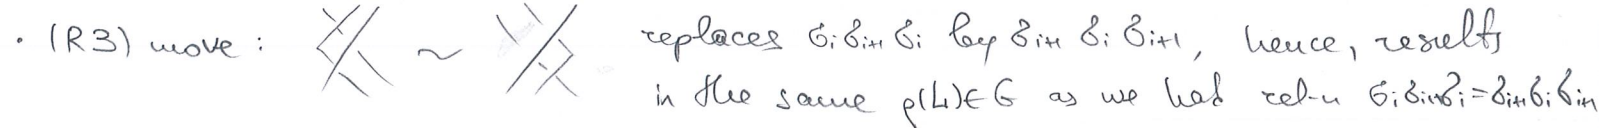 · (R3) move: ~ replaces σᵢσᵢ₊₁σᵢ by σᵢ₊₁σᵢσᵢ₊₁, hence, results
in the same ρ(L)∈G as we had rel-n σᵢσᵢ₊₁σᵢ=σᵢ₊₁σᵢσᵢ₊₁